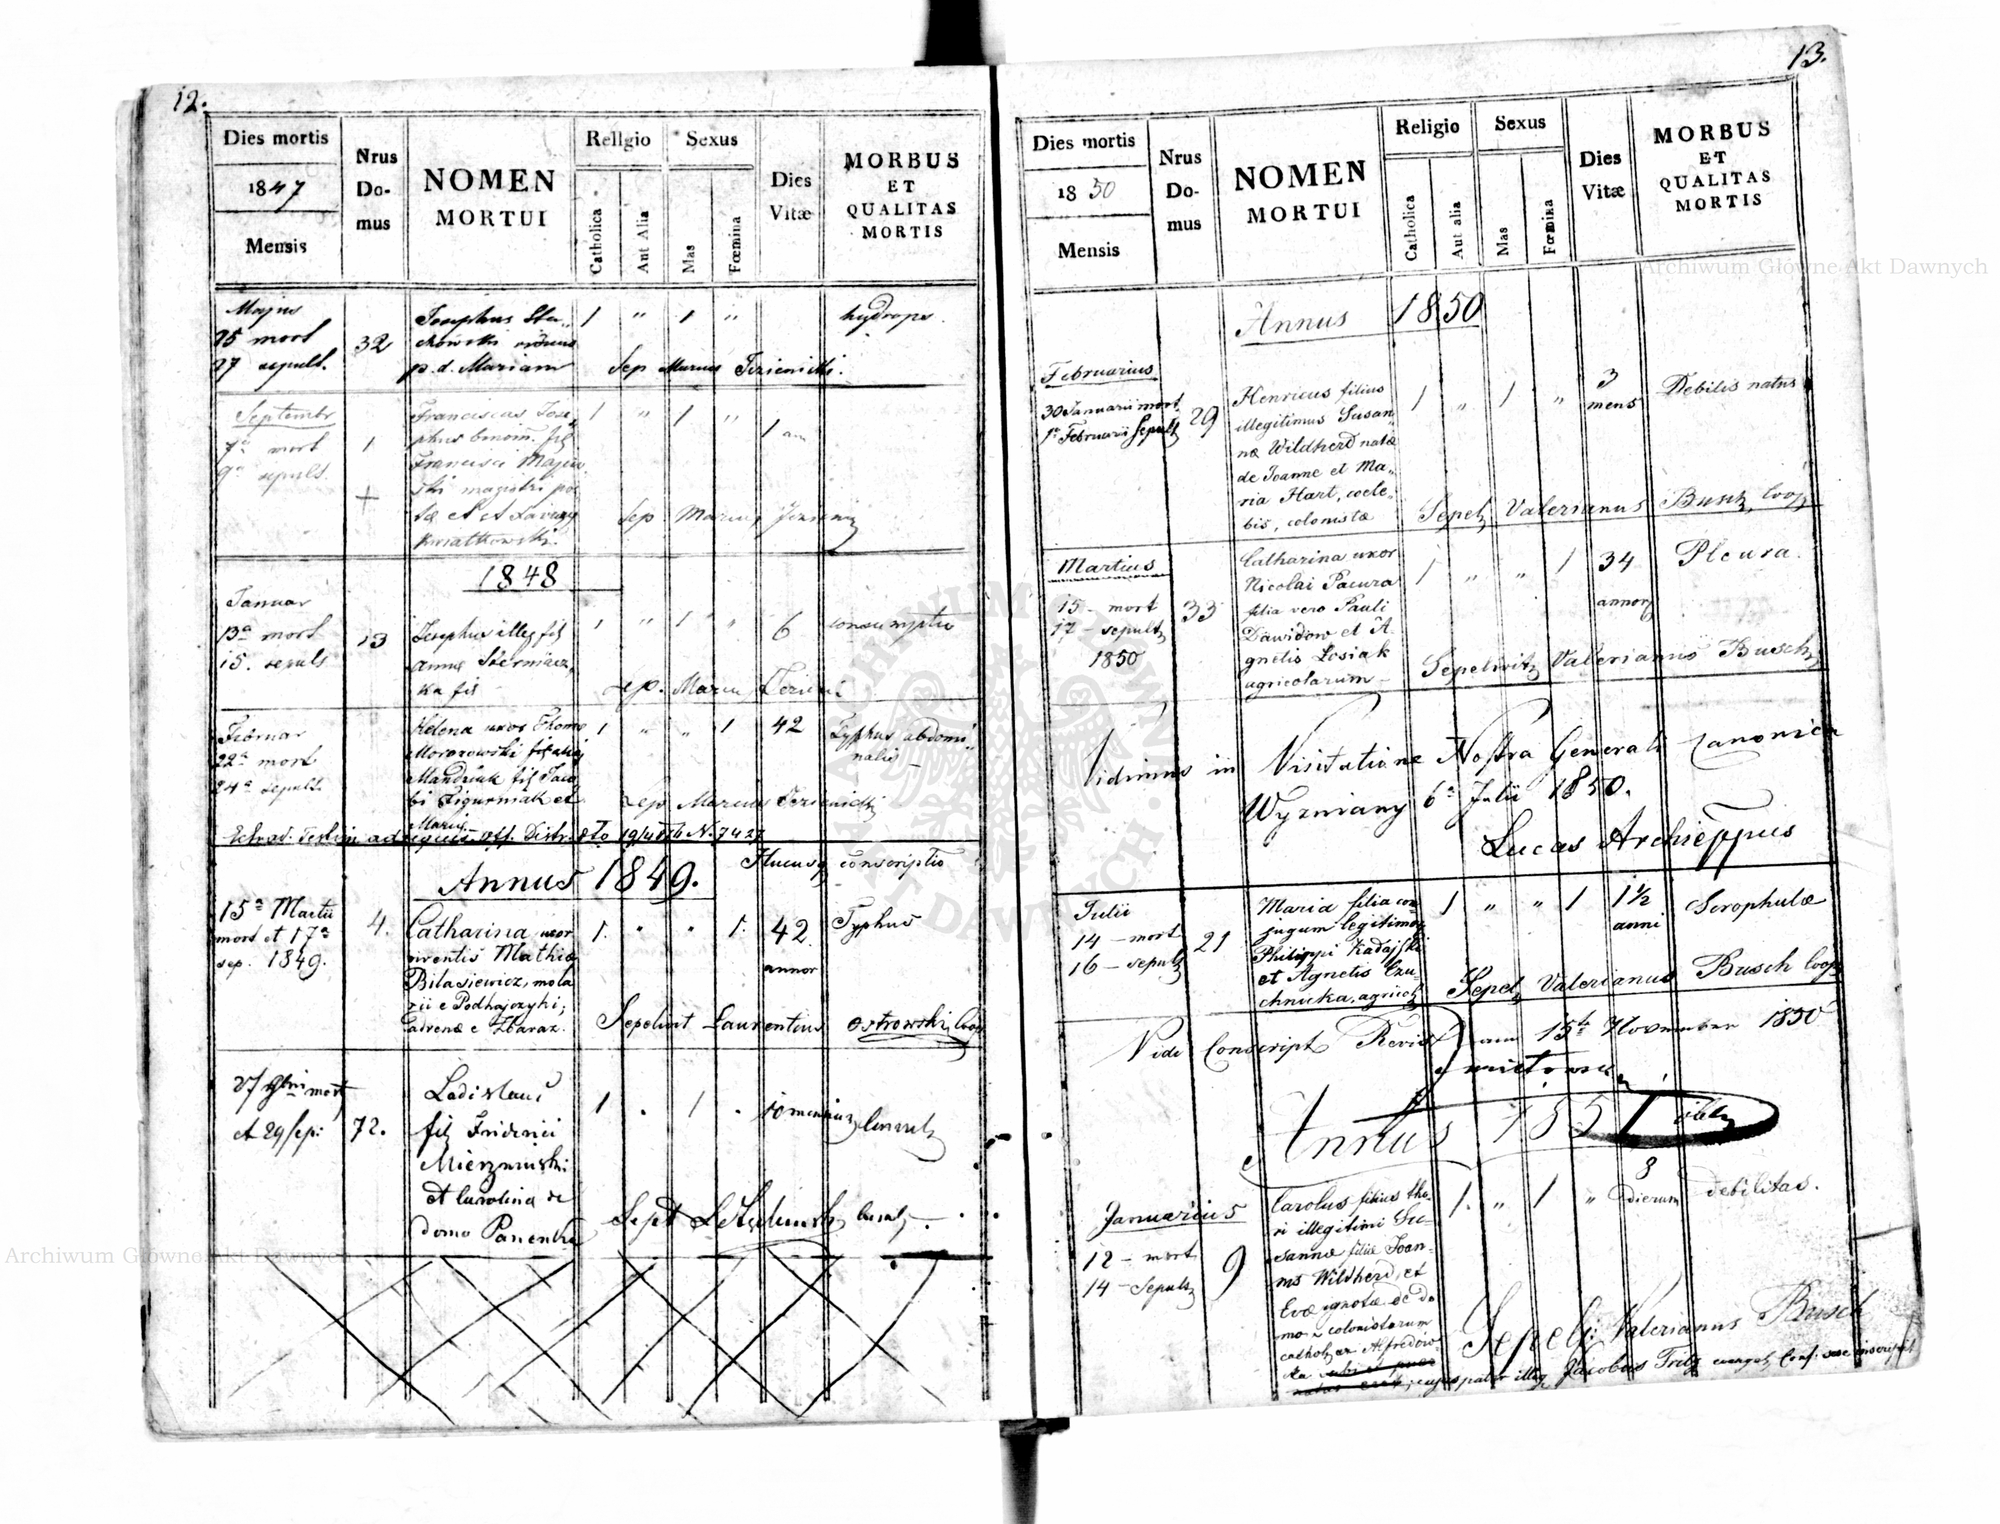 12.
Dies mortis
1847
Mensis
Nrus
Do-
mus
NOMEN
MORTUI
Religio
Catholica
Aut Alia
Sexus
Mas
Fœmina
Dies
Vitæ
MORBUS
ET
QUALITAS
MORTIS
Majus
25 mort
27 sepult.
32
Josephus Sta„
chowski viduus
p. d. Mariam
1 „ 1 „
hydrops.
Sep Marcus
Septembr
7a mort
9a sepult.
1
Franciscus Jose„
phus binom. fil
Francisci Majew
ski magistri pos
tæ et
Kwiatkowski.
1 „ 1 „
1 an
Sep. Marcus
1848
Januar
13a mort
15. sepult
13
Josephus illeg fil
Annæ
ka fil
1 „ 1 „
6
consumptio
sep. Marcus
Februar
22a mort
24a sepult.
Helena uxor Thomæ
Morozowski
Mandziuk fil Jaco
bi Figurniak et
Mariæ
1 „ „ 1
42
Typhus abdomi„
nalis
Sep Marcus
Annus 1849.
Hucusq conscriptio
15a Martii
mort et 17a
sep. 1849.
4.
Catharina, uxor
viventis Mathiæ
Bilasiewicz, mola
rii e Podhajczyki;
adrenæ e Zbaraz.
1. „ „ 1.
42
annor
Typhus
Sepelivit Laurentius Ostrowski, Coop
27 9bri mort
et 29 sep:
72.
Ladislaus
fil Friderici
et Carolina de
domo Panenka
1 . 1 .
10 mensium
Sept
13.
Dies mortis
1850
Mensis
Nrus
Do-
mus
NOMEN
MORTUI
Religio
Catholica
Aut alia
Sexus
Mas
Fœmina
Dies
Vitæ
MORBUS
ET
QUALITAS
MORTIS
Annus 1850
Februarius
30 Januarii mort.
1a Februarii Sepult
29
Henricus filius
illegitimus Susan„
næ Wildherd natæ
de Joanne et Ma„
ria Hart, cœle„
bis, colonistæ
1 „ 1 „
3
mens
Debilis natus
Sepel Valerianus Busch, Coop
Martius
15 - mort
17 - sepult
1850
33
Catharina uxor
Nicolai Pacura
filia vero Pauli
Dawidow et A„
gnetis Lesiak
agricolarum -
1 „ „ 1
34
annor
Pleura.
Sepelivit Valerianus Busch
Vidimus in Visitatione Nostra Generali Canonica
Wyzniany 6a Julii 1850.
Lucas Archieppus
Julii
14 - mort
16 - sepult
21
Maria filia con„
jugum legitimor
Philippi Kadajski
et Agnetis Czu„
chnicka, agricol
1 „ „ 1
1 1/2
anni
Scrophulæ
Sepel Valerianus Busch Coop
Vidi Conscript Revis am 15t November 1850
Annus 1851
Januarius
12 - mort
14 - Sepult
9
Carolus filius tho„
ri illegitimi Su„
sannæ filiæ Joan„
nis Wildherd, et
Evæ ignotæ de do
mo - colonistarum
cathol ex Alfredów„
ka
cujus pater illeg Jacobus Fritz evangel Conf. sese inscripsit
1. „ 1 „
8
dierum
debilitas.
Sepel: Valerianus Busch
ARCHIWUM GŁÓWNE AKT DAWNYCH
Archiwum Główne Akt Dawnych
Archiwum Główne Akt Dawnych